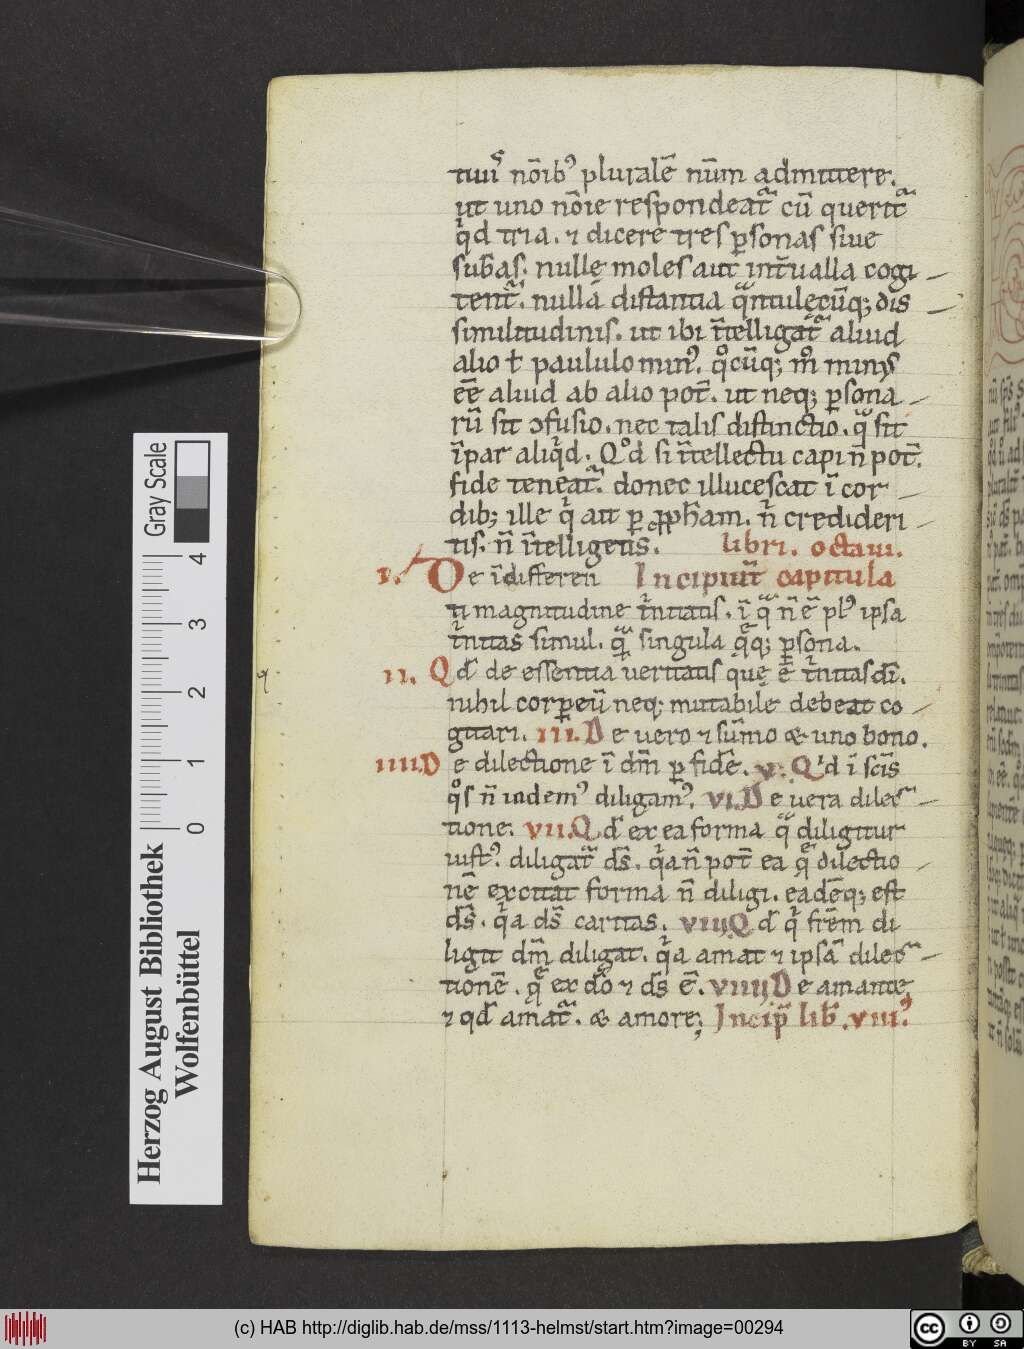 tiuis nōibꝰ pluralē nūm admittere.
ut uno nōie respondeat᷑ cū querit᷑
qͥd tria. ⁊ dicere tres ꝑsonas siue
sub̄as. nullę moles aut int̄ualla cogi
tent᷑. nulla distantia qͣntulęcūq; dis
similitudinis. ut ibi ītelligat᷑ aliud
alio ł paululo minꝰ. qͦcūq; mͦ minꝰ
eē aliud ab alio pot̄. ut neq; ꝑsona
rū sit ↄfusio. nec talis distinctio. qͣ sit
īpar aliqͥd. Qͦd si ītellectu capi n̄ pot̄.
fide teneat᷑. donec illucescat ī cor
dib; ille qͥ ait ꝑ ꝓph̄am. nͥ credideri
tis. n̄ ītelligetis. libri. octaui.
I. De īdifferen Incipiūt capitula
ti magnitudine tͥnitatis. ī qͣ n̄ ē plꝰ ipsa
tͥnitas simul. qͣꝫ singula qͤq; ꝑsona.
II. Qd̄ de essentia ueritatis quę ē tͥnitas dī.
nihil corꝑeū neq; mutabile debeat co
gitari. III. De uero ⁊ sūmo & uno bono.
IIII. De dilectione ī dm̄ ꝑ fidē. V. Qͥd ī scīs
qͦs n̄ uidemꝰ diligamꝰ. VI. De uera dilec
tione. VII. Qd̄ ex ea forma qͣ diligitur
iustꝰ. diligat᷑ ds̄. qͥa n̄ pot̄ ea qͤ dilectio
nē excitat forma n̄ diligi. eadēq; est
ds̄. qͥa ds̄ caritas. VIII. Qd̄ qͥ frēm di
ligit dm̄ diligat. qͥa amat ⁊ ipsā dilec
tionē. qͤ ex dō ⁊ ds̄ ē. VIIII. De amante
⁊ qd̄ amat᷑. & amore; Incip̄ lib̄. VIIIꝰ
Gray Scale
4
3
2
1
0
Herzog August Bibliothek
Wolfenbüttel
(c) HAB http://diglib.hab.de/mss/1113-helmst/start.htm?image=00294
cc
BY SA